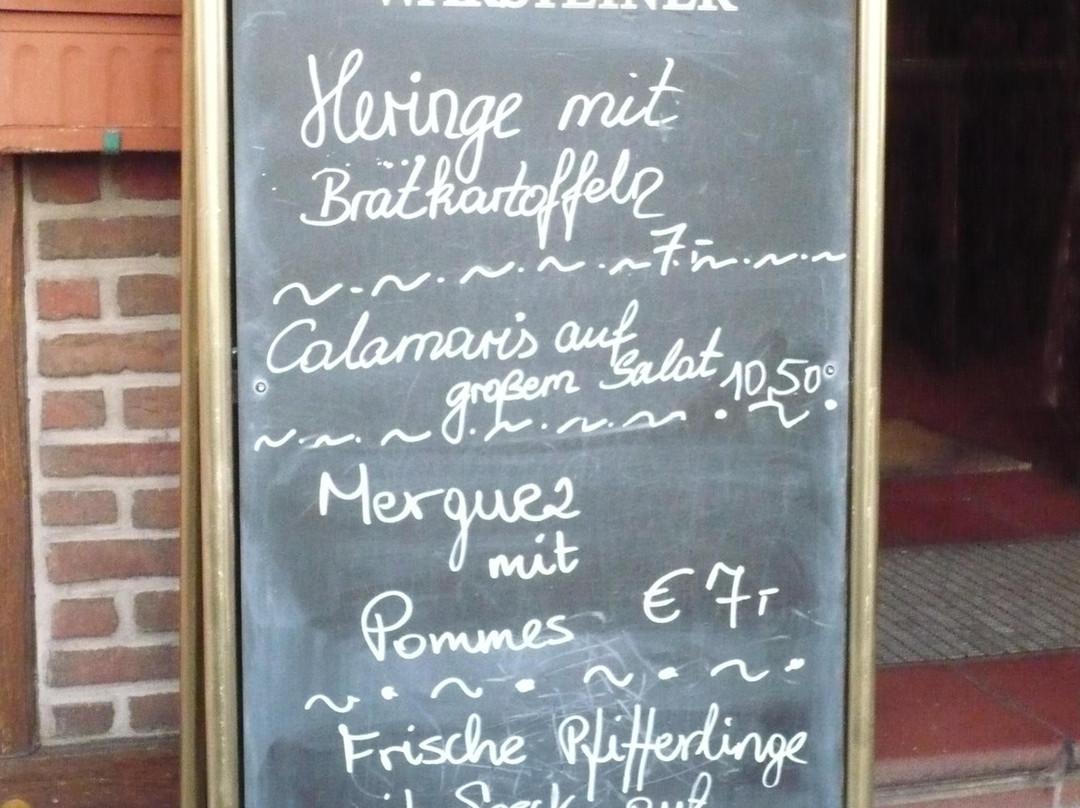 WARSTEINER
Heringe mit
Brätkartoffeln
7,-
Calamaris auf
großem Salat 10,50
Merguez
mit
Pommes € 7,-
Frische Pfifferlinge
mit Speck auf